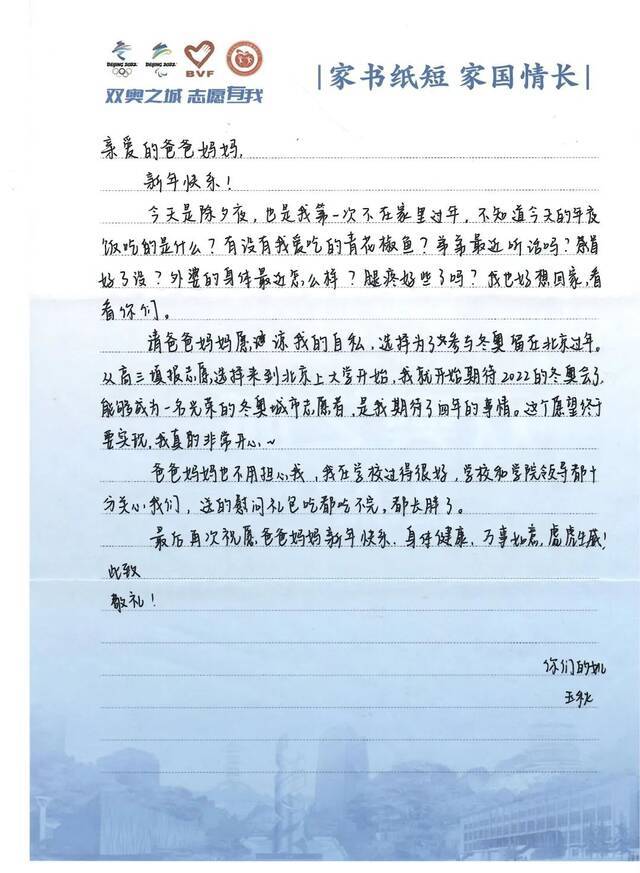 BEIJING 2022 BEIJING 2022 BVF
双奥之城 志愿有我
|家书纸短 家国情长|
亲爱的爸爸妈妈,
新年快乐!
今天是除夕夜,也是我第一次不在家里过年,不知道今天的年夜
饭吃的是什么?有没有我爱吃的青花椒鱼?弟弟最近听话吗?感冒
好了没?外婆的身体最近怎么样?腿疼好些了吗?我也好想回家,看
看你们。
请爸爸妈妈原谅我的自私,选择为了参与冬奥留在北京过年。
从高三填报志愿选择来到北京上大学开始,我就开始期待2022的冬奥会了,
能够成为一名光荣的冬奥城市志愿者,是我期待了四年的事情。这个愿望终于
要实现,我真的非常开心~
爸爸妈妈也不用担心我,我在学校过得很好,学校和学院领导都十
分关心我们,送的慰问礼包吃都吃不完,都长胖了。
最后再次祝愿爸爸妈妈新年快乐、身体健康、万事如意,虎虎生威!
此致
敬礼!
你们的
玉秋